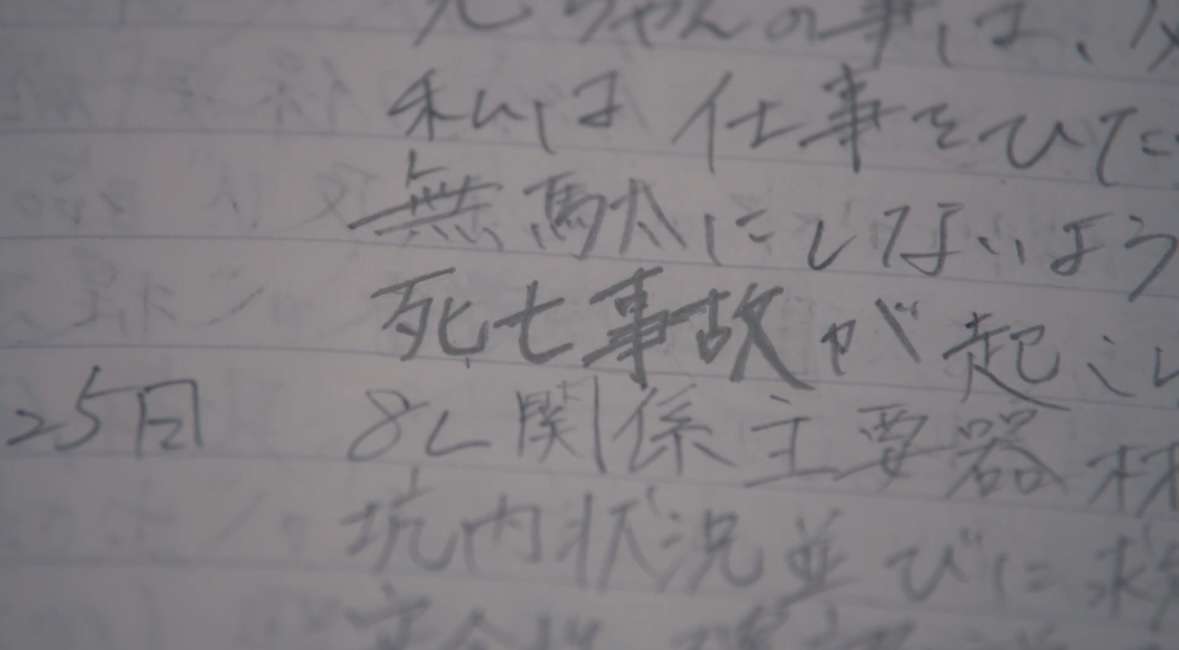 ちゃんの事は、
私は仕事をひた
無駄にしないよう
死亡事故が起こし
25日 8L関係主要器材
坑内状況並びに救
安全性確認